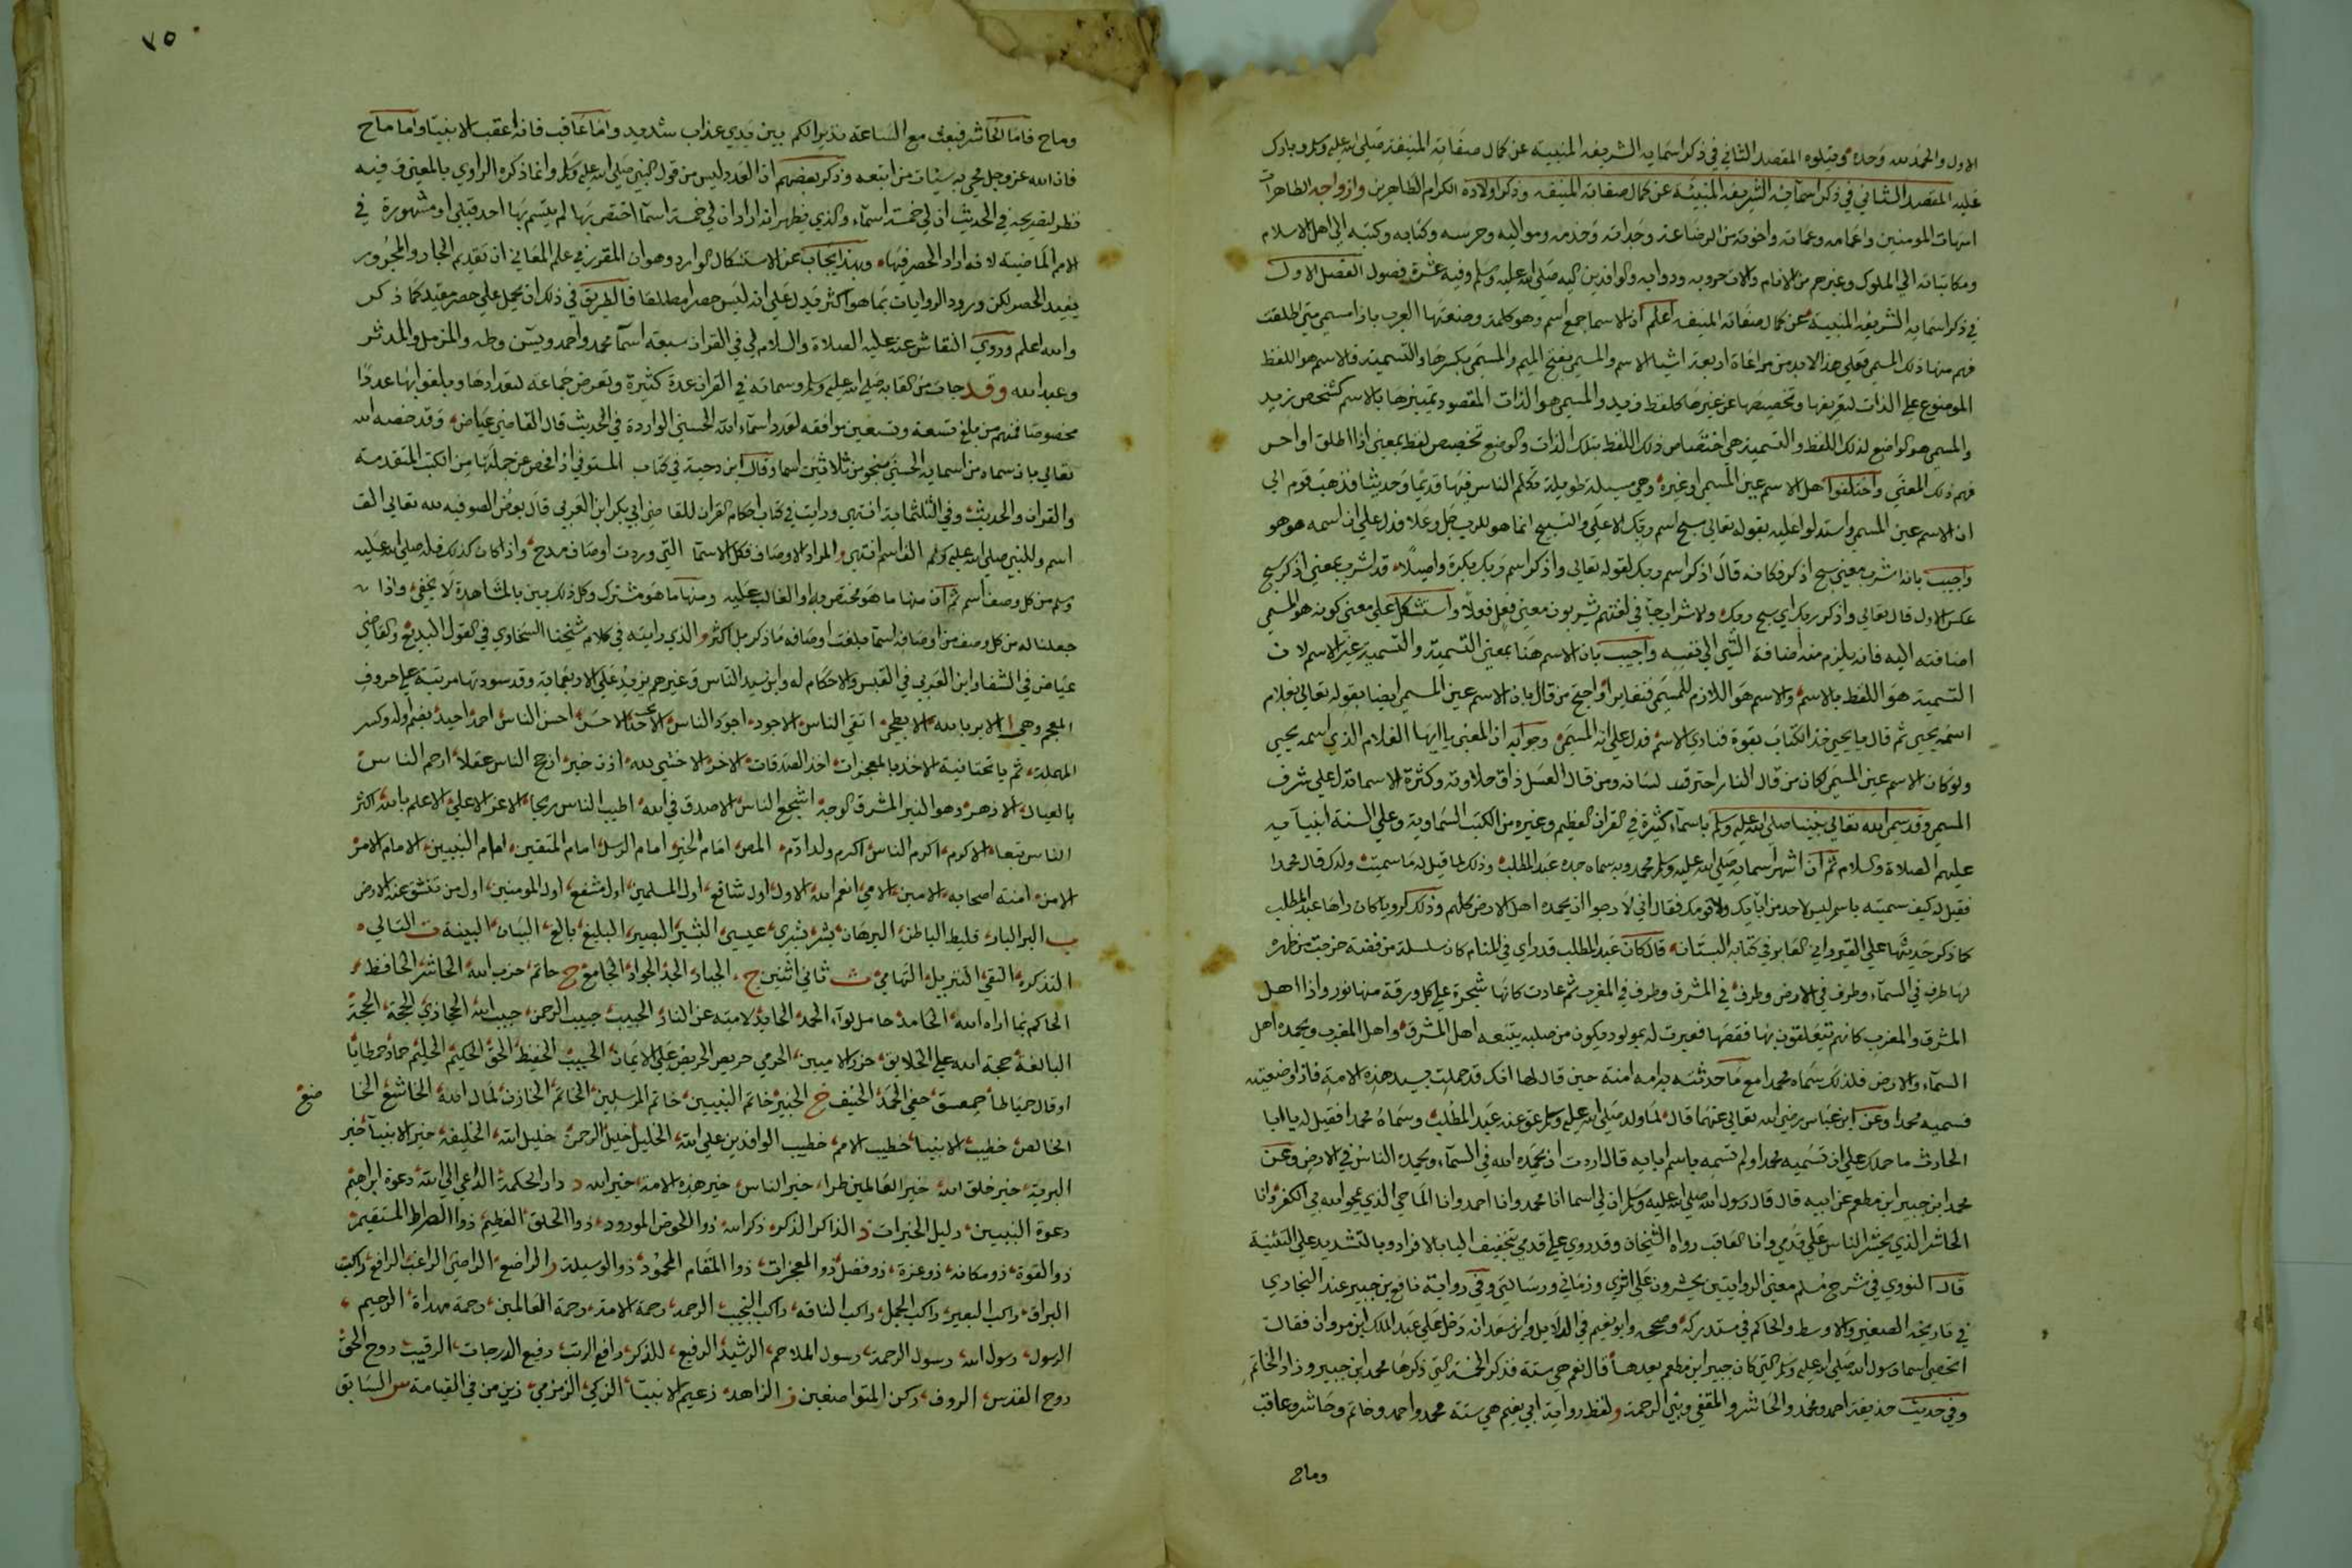 الاول والحمد لله وحده ويتلوه المقصد الثاني في ذكر اسمايه الشريفه المنبيه عن كمال صفاته المنيفة صلى الله عليه وسلم وبارك
عليه المقصد الثاني في ذكر اسمآيه الشريفه المنبيئة عن كمال صفاته المنيفه وذكر اولاده الكرام الطاهرين وازواجه الطاهرات
امهات المومنين واعمامه وعماته واخوته من الرضاعة وجداته وخدمه ومواليه وحرسه وكتابه وكتبه الى اهل الاسلام
ومكاتباته الي الملوك وغيرهم من الانام والات حروبه ودوابه والوافدين اليه صلى الله عليه وسلم وفيه عشرة فصول الفصل الاول
في ذكر اسمايه الشريفه المنبية عن كمال صفاته المنيفه اعلم ان الاسما جمع اسم وهو كلمة وضعتها العرب بازا مسمى متى اطلقت
فهم منها ذلك المسمى فعلي هذا لابد من مراعاة اربعة اشيا الاسم والمسمى بفتح الميم والمسمى بكسرها والتسمية فالاسم هو اللفظ
الموضوع على الذات لتعريفها وتخصيصها عن غيرها كلفظ زيد والمسمى هو الذات المقصود تمييزها بالاسم كشخص زيد
والمسمى هو الواضع لذلك اللفظ والتسمية هي اختصاص ذلك اللفظ بتلك الذات والوضع تخصيص لفظ بمعنى اذا اطلق او احس
فهم ذلك المعنى واختلفوا هل الاسم عين المسمى او غيره وهي مسيلة طويلة تكلم الناس فيها قديما وحديثا فذهب قوم الى
ان الاسم عين المسمى واستدلوا عليه بقوله تعالى سبح اسم ربك الاعلى والتسبيح انما هو للرب جل وعلا فدل على ان اسمه هو هو
واجيب بانه اشرب معنى سبح اذكر فكانه قال اذكر اسم ربك لقوله تعالى واذكر اسم ربك بكرة واصيلا قد اشرب بمعنى اذكر سبح
عكس الاول قال تعالى واذكر ربك اي سبح ربك والاشراب جا في لغتهم يشربون معنى فعل فعلا واستشكل على معنى كونه هو المسمى
اضافته اليه فانه يلزم منه اضافة الشي الي نفسه واجيب بان الاسم هنا بمعنى التسمية والتسمية غير الاسم لان
التسمية هو اللفظ بالاسم والاسم هو اللازم للمسمى فتغايرا واحتج من قال بان الاسم عين المسمى ايضا بقوله تعالى بغلام
اسمه يحيى ثم قال يا يحيى خذ الكتاب بقوة فنادى الاسم فدل على انه المسمى وجوابه ان المعنى يا ايها الغلام الذي اسمه يحيى
ولو كان الاسم عين المسمى لكان من قال النار احترق لسانه ومن قال العسل ذاق حلاوته وكثرة الاسما تدل على شرف
المسمى وقد سمى الله تعالى نبينا صلى الله عليه وسلم باسمآء كثيرة في القران العظيم وغيره من الكتب السماوية وعلى السنة انبيآيه
عليهم الصلاة والسلام ثم ان اشهر اسمايه صلى الله عليه وسلم محمد وبه سماه جده عبد المطلب وذلك لما قيل له ما سميت ولدك قال محمدا
فقيل له كيف سميته باسم ليس لاحد من ابايك ولا قومك فقال اني لارجوا ان يحمده اهل الارض كلهم وذلك لرويا كان راها عبد المطلب
كما ذكر حديثها علي القيرواني العابر في كتابه البستان قال كان عبد المطلب قد راى في المنام كان سلسلة من فضة خرجت من ظهره
لها طرف في السمآء وطرف في الارض وطرف في المشرق وطرف في المغرب ثم عادت كانها شجرة على كل ورقة منها نور واذا اهل
المشرق والمغرب كانهم يتعلقون بها فقصها فعبرت له بمولود يكون من صلبه يتبعه اهل المشرق واهل المغرب ويحمده اهل
السمآء والارض فلذلك سماه محمدا مع ما حدثته به امه امنة حين قال لها انك قد حملت بسيد هذه الامة فاذا وضعتيه
فسميه محمدا وعن ابن عباس رضي الله تعالى عنهما قال لما ولد صلى الله عليه وسلم عق عنه عبد المطلب وسماه محمدا فقيل له يا ابا
الحارث ما حملك على ان تسميه محمدا ولم تسمه باسم ابايه قال اردت ان يحمده الله في السمآء ويحمده الناس في الارض وعن
محمد ابن جبير ابن مطعم عن ابيه قال قال رسول الله صلى الله عليه وسلم ان لي اسما انا محمد وانا احمد وانا الماحي الذي يمحوا الله بي الكفر وانا
الحاشر الذي يحشر الناس على قدمي وانا العاقب رواه الشيخان وقد روي على قدمي بتخفيف اليا بالافراد وبالتشديد على التثنية
قال النووي في شرح مسلم معنى الروايتين يحشرون على اثري وزماني ورسالتي وفي رواية نافع بن جبير عند البخاري
في تاريخه الصغير والاوسط والحاكم في مستدركه وصححه وابو نعيم في الدلايل وابن سعد انه دخل على عبد الملك ابن مروان فقال
اتحصي اسما رسول الله صلى الله عليه وسلم التي كان جبير ابن مطعم يعدها قال نعم هي ستة فذكر الخمسة التي ذكرها محمد ابن جبير وزاد الخاتم
وفي حديث حذيفة احمد ومحمد والحاشر والمقفى ونبي الرحمة ولفظ رواية ابي نعيم هي ستة محمد واحمد وخاتم وحاشر وعاقب
وماح
٧٥
وماح فاما الحاشر فبعث مع الساعة نذيرا لكم بين يدي عذاب شديد واما عاقب فانه اعقب الانبيا واما ماح
فان الله عز وجل محى به سيئات من اتبعه وذكر بعضهم ان العدد ليس من قول النبي صلى الله عليه وسلم وانما ذكره الراوي بالمعنى وفيه
نظر لتصريحه في الحديث ان لي خمسة اسمآء والذي يظهر انه اراد ان لي خمسة اسمآ اختص بها لم يتسم بها احد قبلي او مشهورة في
الامم الماضية لا انه اراد الحصر فيها وبهذا يجاب عن الاستشكال الوارد وهو ان المقرر في علم المعاني ان تقديم الجار والمجرور
يفيد الحصر لكن ورود الروايات بما هو اكثر يدل على انه ليس حصرا مطلقا فالطريق في ذلك ان يحمل على حصر مقيد كما ذكر
والله اعلم وروي النقاش عنه عليه الصلاة والسلام لي في القران سبعة اسمآ محمد واحمد ويسن وطه والمزمل والمدثر
وعبد الله وقد جات من القابه صلى الله عليه وسلم وسماته في القران عدة كثيرة وتعرض جماعة لتعدادها وبلغوا بها عددا
مخصوصا فمنهم من بلغ تسعة وتسعين موافقة لعدد اسمآء الله الحسنى الواردة في الحديث قال القاضي عياض وقد خصه الله
تعالى بان سماه من اسمايه الحسنى بنحو من ثلاثين اسما وقال ابن دحية في كتاب المستوفي اذا فحص عن جملتها من الكتب المتقدمة
والقران والحديث وفي الثلثماية انتهى ورايت في كتاب احكام القران للقاضي ابي بكر ابن العربي قال بعض الصوفيه لله تعالى الف
اسم وللنبي صلى الله عليه وسلم الف اسم انتهى والمراد الاوصاف فكل الاسمآ التي وردت اوصاف مدح واذا كان كذلك فله صلى الله عليه
وسلم من كل وصف اسم ثم ان منها ما هو مختص به او الغالب عليه ومنها ما هو مشترك وكل ذلك بين بالمشاهدة لا يخفى واذا
جعلنا له من كل وصف من اوصافه اسمآ بلغت اوصافه ما ذكر بل اكثر والذي رايته في كلام شيخنا السخاوي في القول البديع والقاضي
عياض في الشفا وابن العربي في القبس والاحكام له وابن سيد الناس وغيرهم يزيد على الاربعماية وقد سردتها مرتبة على حروف
المعجم وهي ا الابر بالله الابطحي اتقى الناس الاجود اجود الناس الاحد الاحسن احسن الناس احمد احيد بضم اوله وكسر
المهملة ثم يا تحتانية الاخذ بالمعجزات اخذ الصدقات الاخر الاخشى لله اذن خير ارجح الناس عقلا ارحم الناس
بالعيال الازهر وهو النير المشرق الوجه اشجع الناس الاصدق في الله اطيب الناس ريحا الاعز الاعلى الاعلم بالله اكثر
الناس تبعا الاكرم اكرم الناس اكرم ولد ادم المص امام الخير امام الرسل امام المتقين امام النبيين الامام الامر
الامن امنة اصحابه الامين الامي انعم الله الاول اول شافع اول المسلمين اول مشفع اول المومنين اول من تنشق عنه الارض
ب البر البار قليط الباطن البرهان بشر بشرى عيسى البشير البصير البليغ بالغ البيان البينة ت التالي
التذكرة التقي التنزيل التهامي ث ثاني اثنين ج الجبار الجد الجواد الجامع ح حاتم حزب الله الحاشر الحافظ
الحاكم بما اراه الله الحامد حامل لوآء الحمد الحايد لامته عن النار الحبيب حبيب الرحمن حبيب الله الحجازي الحجة الحجة
البالغة حجة الله على الخلايق حرز الاميين الحرمي حريص الحريص على الايمان الحسيب الحفيظ الحق الحكيم الحليم حماد حمطايا
او قال حمياطا حمعسق حفي الحمد الحنيف خ الخبير خاتم النبيين خاتم المرسلين الخاتم الخازن لمال الله الخاشع الخا
ضع
الخالص خطيب الانبيا خطيب الامم خطيب الوافدين على الله الخليل خليل الرحمن خليل الله الخليفة خير الانبيآ خير
البرية خير خلق الله خير العالمين طرا خير الناس خير هذه الامة خيرة الله د دار الحكمة الداعي الى الله دعوة ابراهيم
دعوة النبيين دليل الخيرات ذ الذاكر الذكر ذكر الله ذوا الحوض المورود ذوا الخلق العظيم ذوا الصراط المستقيم
ذو القوة ذو مكانه ذو عزة ذو فضل ذو المعجزات ذوا المقام المحمود ذو الوسيلة ر الراضع الراضي الراغب الرافع راكب
البراق راكب البعير راكب الجمل راكب الناقه راكب النجيب الرحمه رحمة الامة رحمة العالمين رحمة مهداة الرحيم
الرسول رسول الله رسول الرحمة رسول الملاحم الرشيد الرفيع للذكر رافع الرتب رفيع الدرجات الرقيب روح الحق
روح القدس الروف ركن المتواضعين ز الزاهد زعيم الانبيآ الزكي الزمزمي زين من في القيامة س السابق